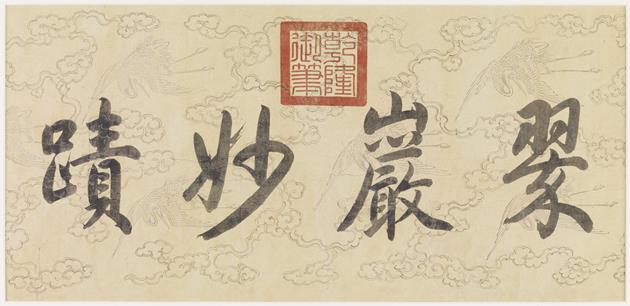 乾隆御筆
翠巖妙蹟